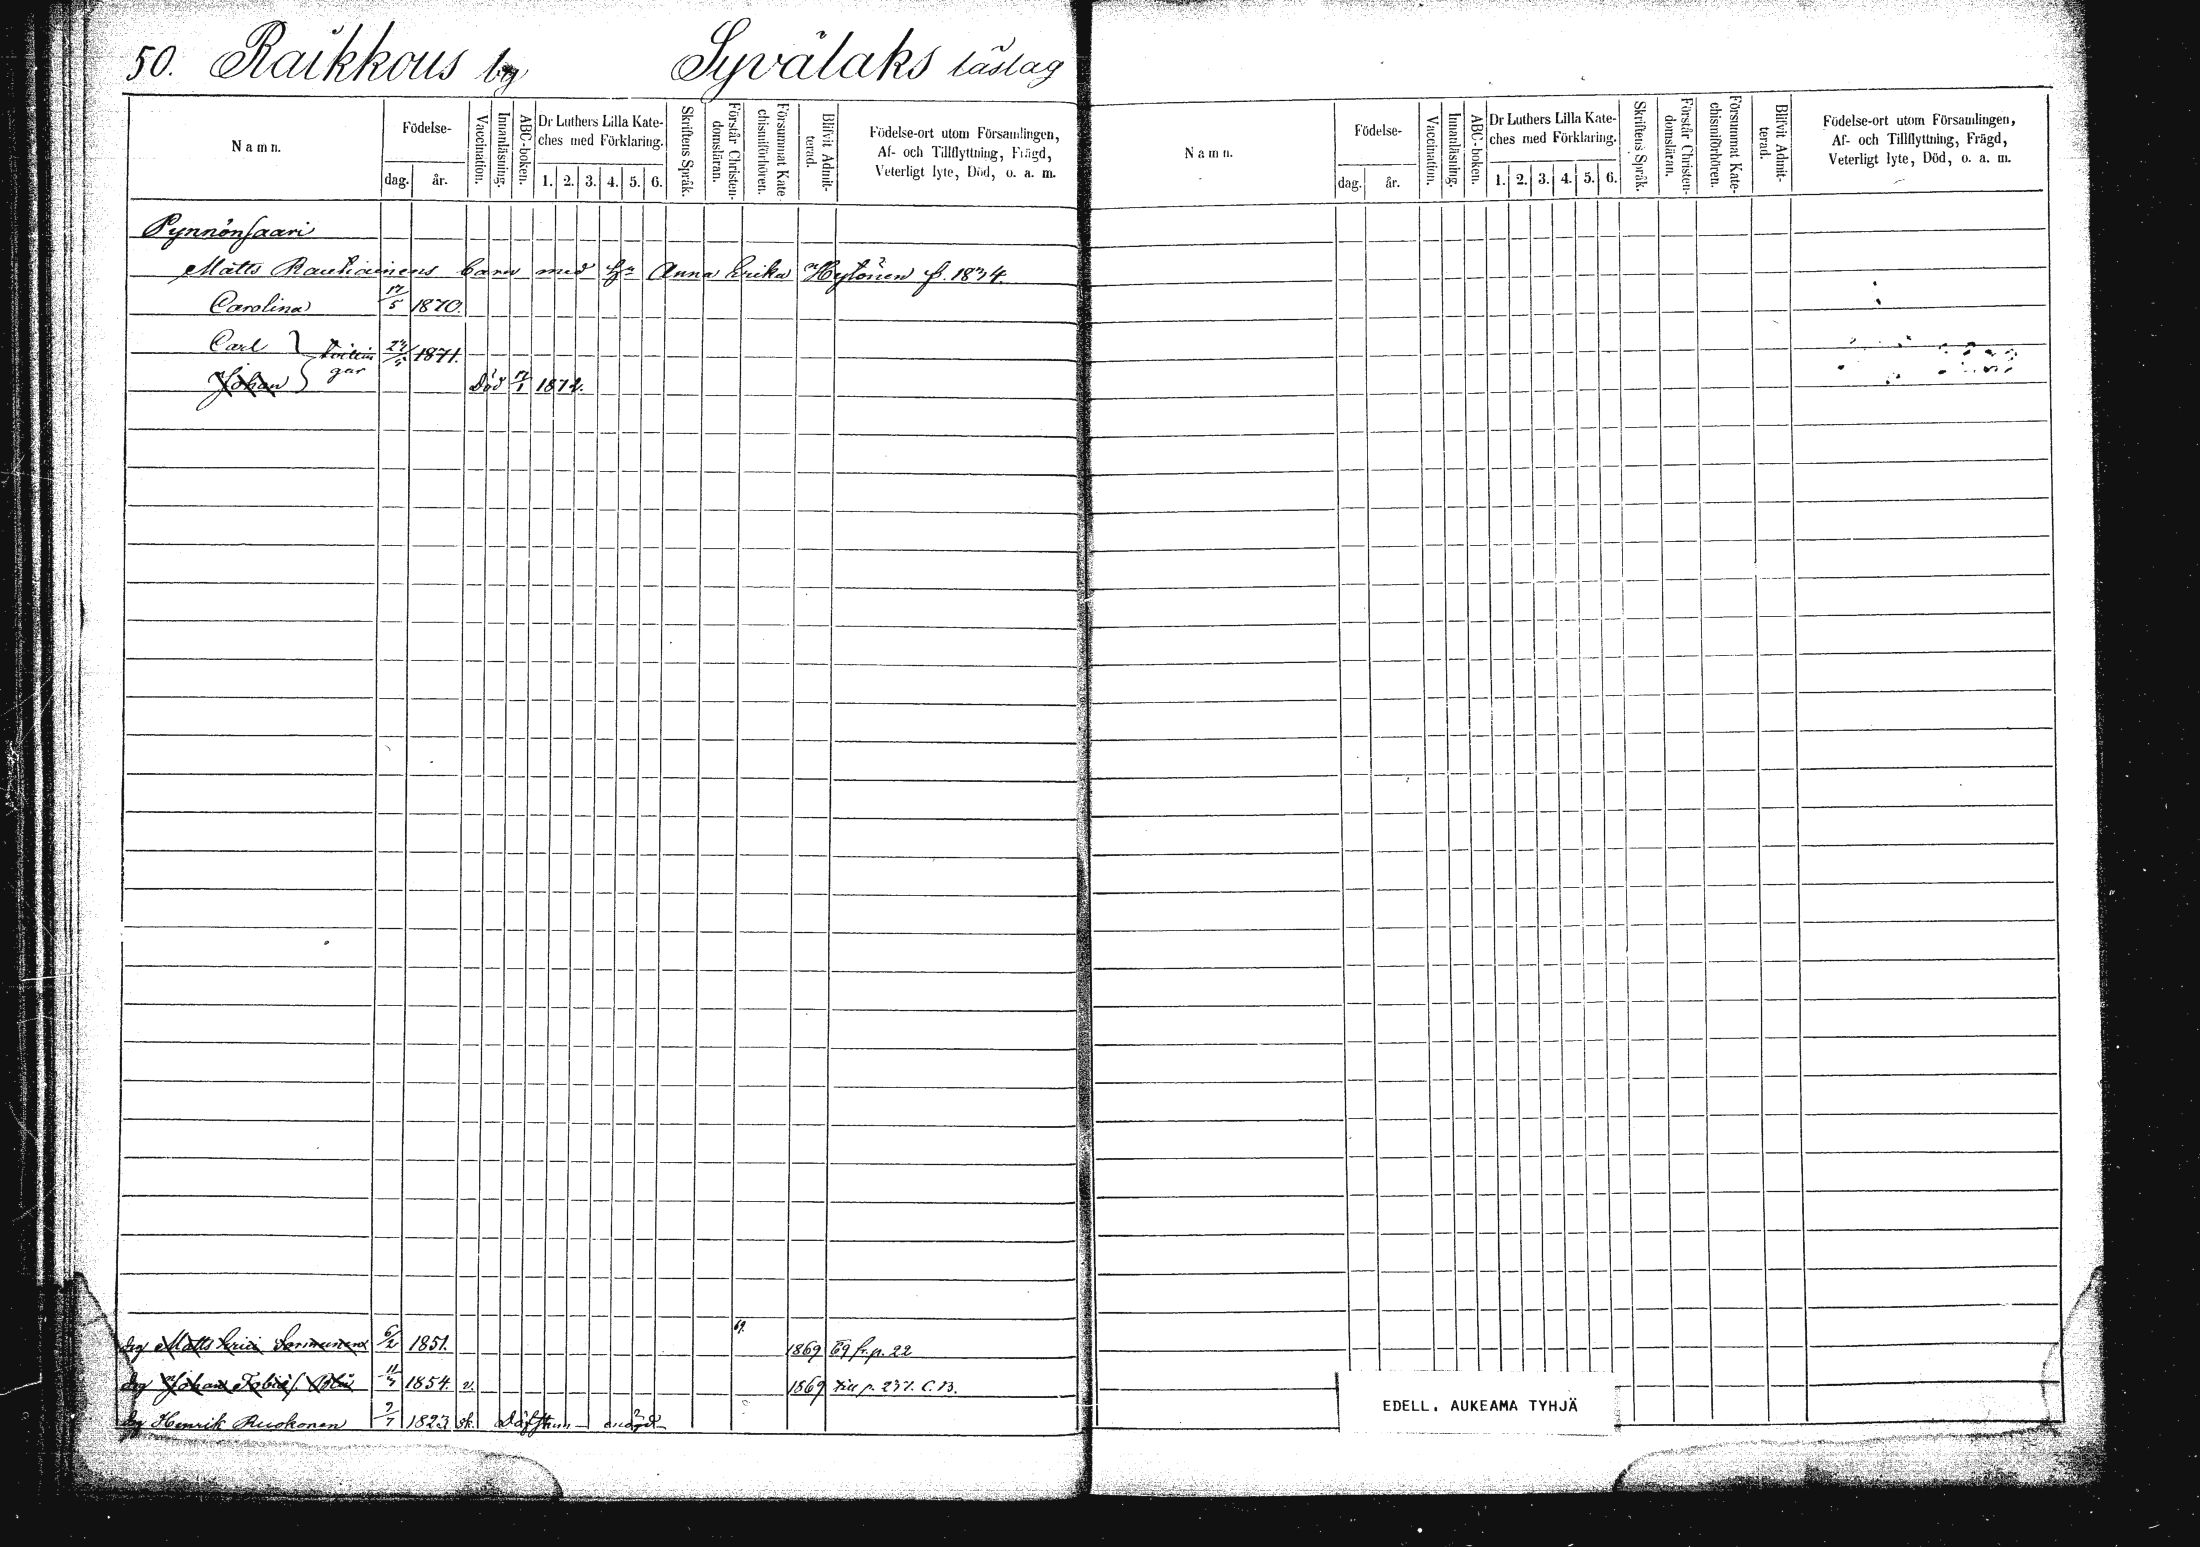 50. Raikkous by Syvälaks läslag
Namn. Födelse- dag. år. Vaccination. Innanläsning. ABC-boken. Dr Luthers Lilla Kateches med Förklaring. 1. 2. 3. 4. 5. 6. Skriftens Språk. Förstår Christendomsläran. Försummat Katechismiförhören. Blifvit Admitterad. Födelse-ort utom Församlingen, Af- och Tillflyttning, Frägd, Veterligt lyte, Död, o. a. m.
Pynnönsaari
Matts Rautiainens barn med Anna Erika Hytönen f. 1834.
Carolina 17/5 1870.
Carl tvillin 1871.
Johan gar Död 1872.
69.
Matts Erici Sormunen 6/2 1851. 1869 69 fr. p. 22
Johan Tobias 1854. v. 1869 till p. 237. C. B.
Henrik Ruokonen 2/7 1823 sk. Döfstum
Namn. Födelse- dag. år. Vaccination. Innanläsning. ABC-boken. Dr Luthers Lilla Kateches med Förklaring. 1. 2. 3. 4. 5. 6. Skriftens Språk. Förstår Christendomsläran. Försummat Katechismiförhören. Blifvit Admitterad. Födelse-ort utom Församlingen, Af- och Tillflyttning, Frägd, Veterligt lyte, Död, o. a. m.
EDELL. AUKEAMA TYHJÄ